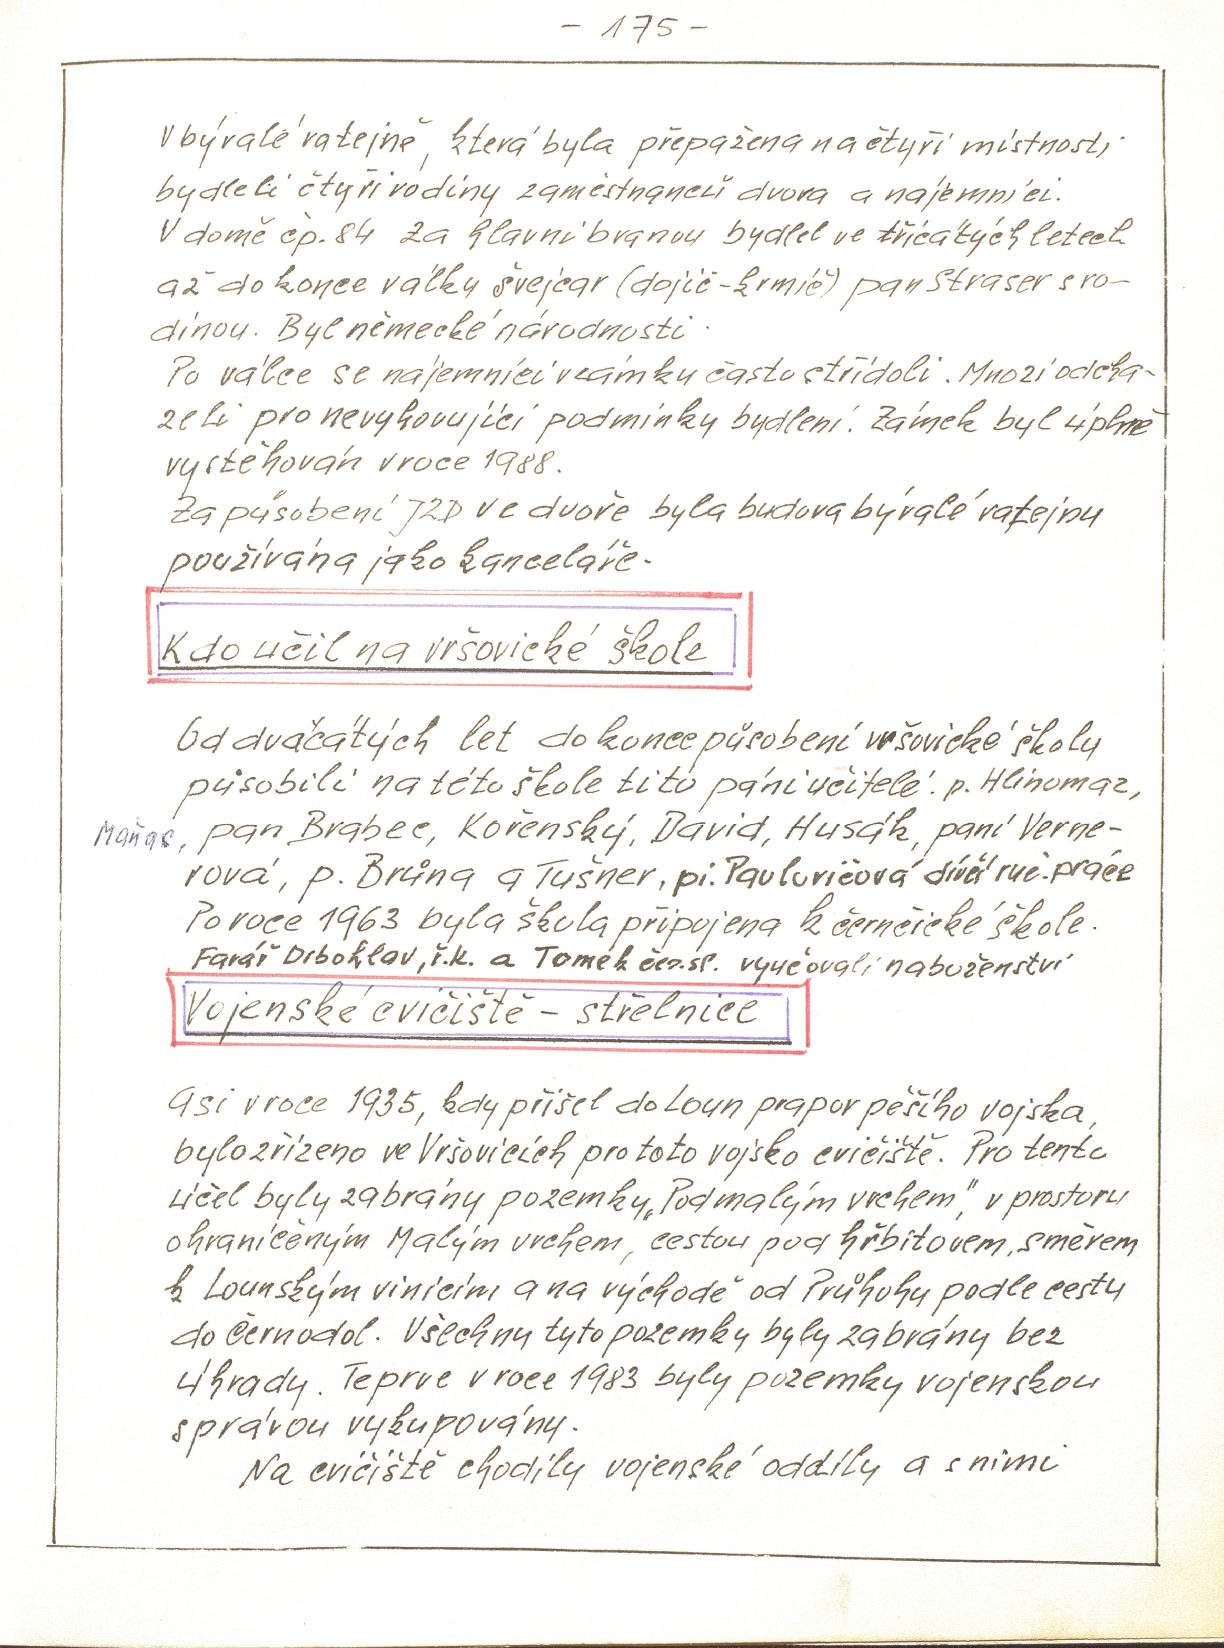 - 175 -
V bývalé ratejně, která byla přepažena na čtyři místnosti
bydleli čtyři rodiny zaměstnanců dvora a nájemníci.
V domě čp. 84 za hlavní branou bydlel ve třicátých letech
až do konce války švejcar (dojič - krmič) pan Straser s ro-
dinou. Byl německé národnosti.
Po válce se nájemníci v zámku často střídali. Mnozí odchá-
zeli pro nevyhovující podmínky bydlení. Zámek byl úplně
vystěhován v roce 1988.
Za působení JZD ve dvoře byla budova bývalé ratejny
používána jako kanceláře.
Kdo učil na vršovické škole
Od dvacátých let do konce působení vršovické školy
působili na této škole tito páni učitelé: p. Hlinomaz,
Maňas, pan Brabec, Kořenský, David, Husák, paní Verne-
rová, p. Brůna a Tušner, pí. Pavlovičová dívčí ruč. práce
Po roce 1963 byla škola připojena k černčické škole.
Farář Drbohlav, ř.k. a Tomek čes.sl. vyučovali náboženství
Vojenské cvičiště - střelnice
Asi v roce 1935, kdy přišel do Loun prapor pěšího vojska,
bylo zřízeno ve Vršovicích pro toto vojsko cvičiště. Pro tento
účel byly zabrány pozemky „Pod malým vrchem", v prostoru
ohraničeným Malým vrchem, cestou pod hřbitovem, směrem
k Lounským vinicím a na východě od Průhohy podle cesty
do Černodol. Všechny tyto pozemky byly zabrány bez
úhrady. Teprve v roce 1983 byly pozemky vojenskou
správou vykupovány.
Na cvičiště chodily vojenské oddíly a s nimi